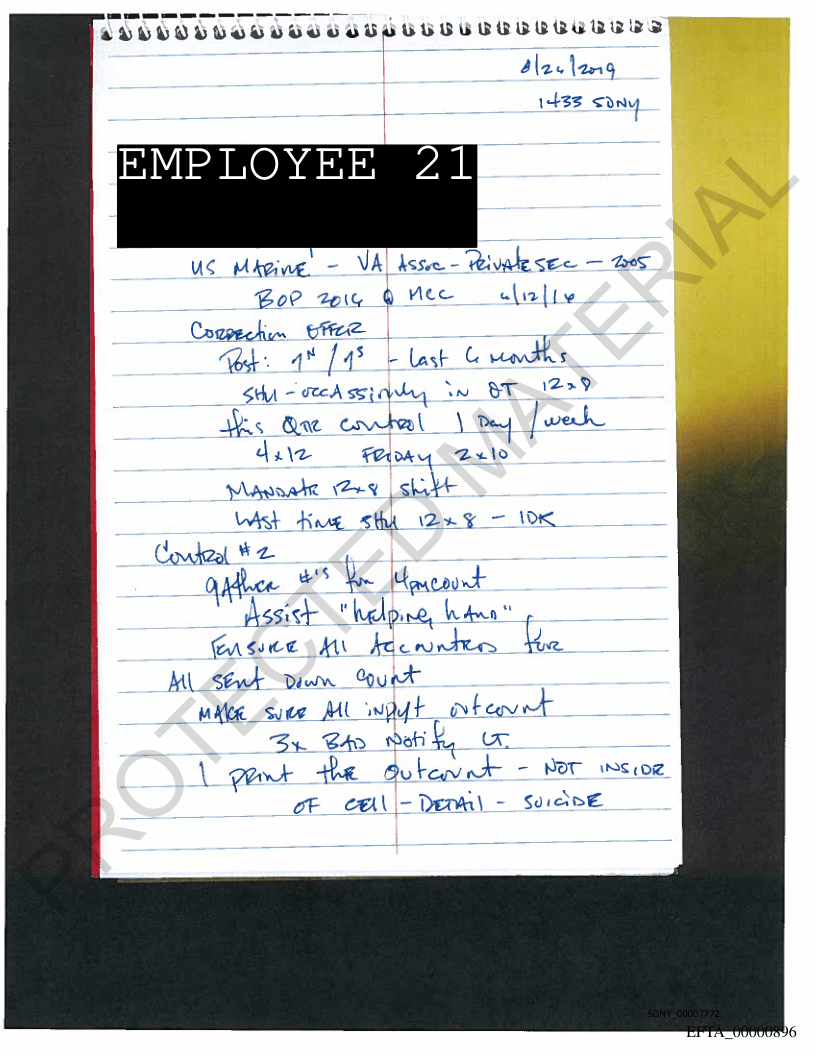 8/26/2019
1433 SDNY
EMPLOYEE 21
US MARINE - VA Assoc - PRIVATE SEC - 2005
BOP 2016 @ MCC 6/12/16
Correction OFFICR
Post: 9N / 9S - Last 6 Months
SHU - occAssionly in OT 12x8
this QTR control 1 Day / week
4x12 FRIDAY 2x10
MANDATE 12x8 shift
LAST time SHU 12x8 - IDK
Control #2
gAther #'s for 4pm count
Assist "helping hAnd"
ENSURE All Accounted for
All SENt Down Count
MAKE SURE All input outcount
3x BAD Notify LT.
I print the Outcount - NOT INSIDE
OF CEll - DETAil - SUICIDE
PROTECTED MATERIAL
SDNY_00007772
EFTA_00000896